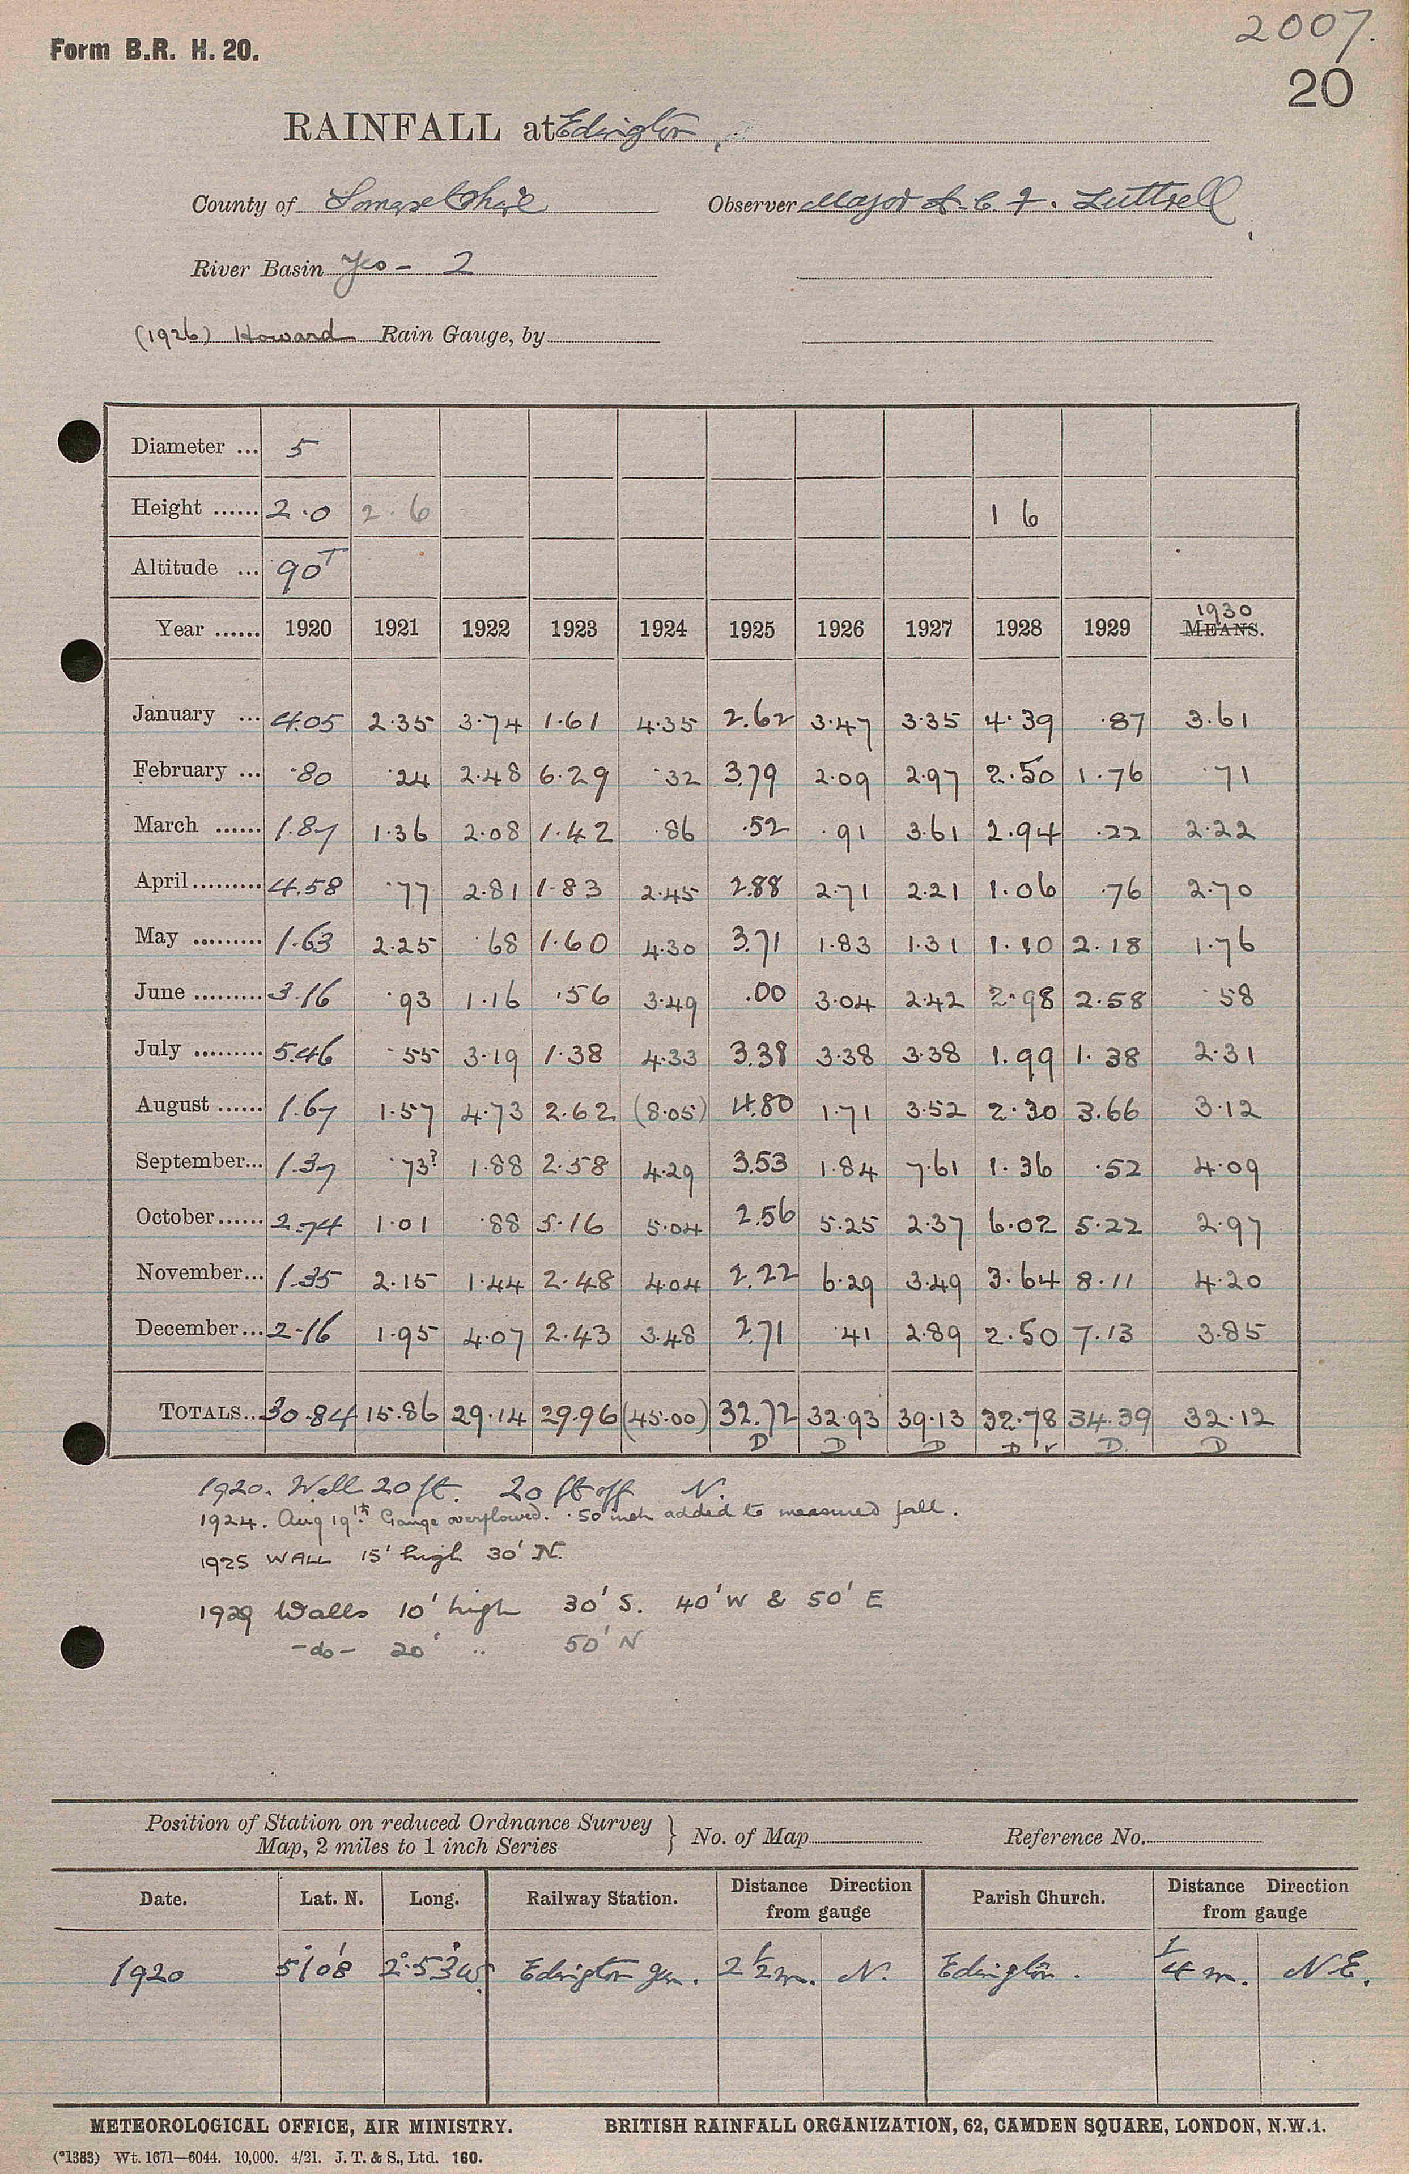 2007.
Form B.R. H. 20.
20
RAINFALL at Edington
County of Somersetshire Observer Major A. C. F. Luttrell
River Basin Yeo - 2
(1926) Howard Rain Gauge, by
Diameter ... 5
Height ...... 2.0 2.6 1 6
Altitude ... 90T
1930
Year ...... 1920 1921 1922 1923 1924 1925 1926 1927 1928 1929 MEANS.
January ... 4.05 2.35 3.74 1.61 4.35 2.62 3.47 3.35 4.39 .87 3.61
February ... .80 .24 2.48 6.29 .32 3.79 2.09 2.97 2.50 1.76 .71
March ...... 1.87 1.36 2.08 1.42 .86 .52 .91 3.61 2.94 .22 2.22
April ......... 4.58 .77 2.81 1.83 2.45 2.88 2.71 2.21 1.06 .76 2.70
May ......... 1.63 2.25 .68 1.60 4.30 3.71 1.83 1.31 1.10 2.18 1.76
June ......... 3.16 .93 1.16 .56 3.49 .00 3.04 2.42 2.98 2.58 .58
July ......... 5.46 .55 3.19 1.38 4.33 3.38 3.38 3.38 1.99 1.38 2.31
August ...... 1.67 1.57 4.73 2.62 (8.05) 4.80 1.71 3.52 2.30 3.66 3.12
September... 1.37 .73? 1.88 2.58 4.29 3.53 1.84 7.61 1.36 .52 4.09
October ...... 2.74 1.01 .88 5.16 5.04 2.56 5.25 2.37 6.02 5.22 2.97
November... 1.35 2.15 1.44 2.48 4.04 2.22 6.29 3.49 3.64 8.11 4.20
December... 2.16 1.95 4.07 2.43 3.48 2.71 .41 2.89 2.50 7.13 3.85
TOTALS.. 30.84 15.86 29.14 29.96 (45.00) 32.72 32.93 39.13 32.78 34.39 32.12
D D D D D D
1920. Wall 20 ft. 20 ft off N.
1924. Aug 19th. Gauge overflowed. .50 inch added to measured fall.
1925 WALL 15' high 30' N.
1929 Walls 10' high 30' S. 40' W & 50' E
-do- 20' .. 50' N
Position of Station on reduced Ordnance Survey
Map, 2 miles to 1 inch Series } No. of Map Reference No.
Date. Lat. N. Long. Railway Station. Distance Direction from gauge Parish Church. Distance Direction from gauge
1920 51°08' 2°53'W. Edington Jun. 2 1/2 m. N. Edington. 1/4 m. N.E.
METEOROLOGICAL OFFICE, AIR MINISTRY. BRITISH RAINFALL ORGANIZATION, 62, CAMDEN SQUARE, LONDON, N.W.1.
(*1383) Wt. 1671—6044. 10,000. 4/21. J. T. & S., Ltd. 160.